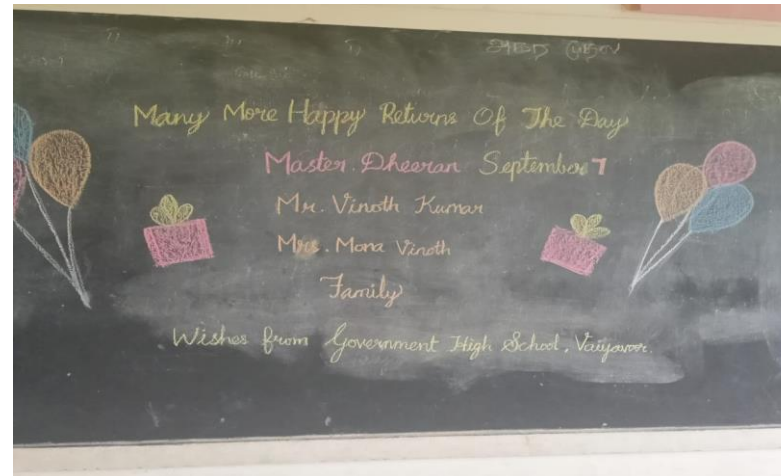 Many More Happy Returns Of The Day
Master. Dheeran September 7
Mr. Vinoth Kumar
Mrs. Mona Vinoth
Family
Wishes from Government High School, Vaiyavoor.